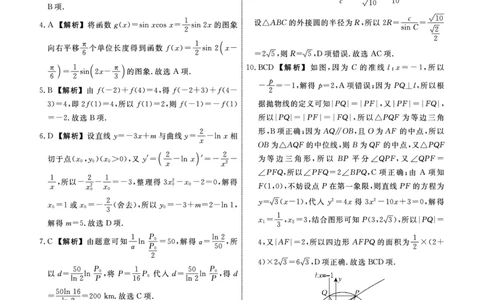 B项.
4.A 【解析】将函数 g(x)=sin xcos x=1/2 sin 2x 的图象
向右平移 π/6 个单位长度得到函数 f(x)=1/2 sin 2(x-
π/6)=1/2 sin(2x-π/3)的图象.故选 A 项.
5.B 【解析】由 f(-2)+f(4)=4,得 f(-2+3)+f(4-
3)=4,即 2f(1)=4,所以 f(1)=2,则 f(-1)=-f(1)
=-2.故选 B 项.
6.D 【解析】设直线 y=-3x+m 与曲线 y=2/x-ln x 相
切于点(x₀,y₀)(x₀>0),又 y′=(2/x-ln x)′=-2/x²-
1/x,所以-2/x₀²-1/x₀=-3,整理得 3x₀²-x₀-2=0,解得
x₀=1 或 x₀=-2/3(舍去),所以 y₀=-3+m=2-ln 1,
解得 m=5.故选 D 项.
7.C 【解析】由题意可知 1/a ln P₀/(P₀/2)=50,解得 a=ln 2/50,所
以 d=50/ln 2 ln P₀/P,将 P=1/16 P₀ 代入 d=50/ln 2 ln P₀/P,得 d
=50ln 16/ln 2=200 km.故选 C 项.
√10 10
设△ABC 的外接圆的半径为 R,所以 2R=c/sin C=√10/(√2/2)
=2√5,则 R=√5,D 项错误.故选 AC 项.
10.BCD 【解析】如图,因为 C 的准线 l:x=-1,所以
-p/2=-1,解得 p=2,A 项错误;因为 PQ⊥l,所以根
据抛物线的定义可知|PQ|=|PF|,又|PF|=|FQ|,
所以|PQ|=|PF|=|FQ|,所以△PQF 为等边三角
形,B 项正确;因为 AQ//OB,且 O 为 AF 的中点,所以
OB 为△AQF 的中位线,则 B 为 QF 的中点,又△PQF
为等边三角形,所以 BP 平分∠QPF,又∠QPF=
∠PFQ,所以∠PFQ=2∠BPQ,C 项正确;由 A 项知
F(1,0),不妨设点 P 在第一象限,则直线 PF 的方程为
y=√3(x-1),代入 y²=4x 得 3x²-10x+3=0,解得
x₁=1/3,x₂=3,结合图形可知 P(3,2√3),所以|PQ|=
4,又|AF|=2,所以四边形 AFPQ 的面积为 1/2×(2+
4)×2√3=6√3,D 项正确.故选 BCD 项.
l:x=-1 y
Q P